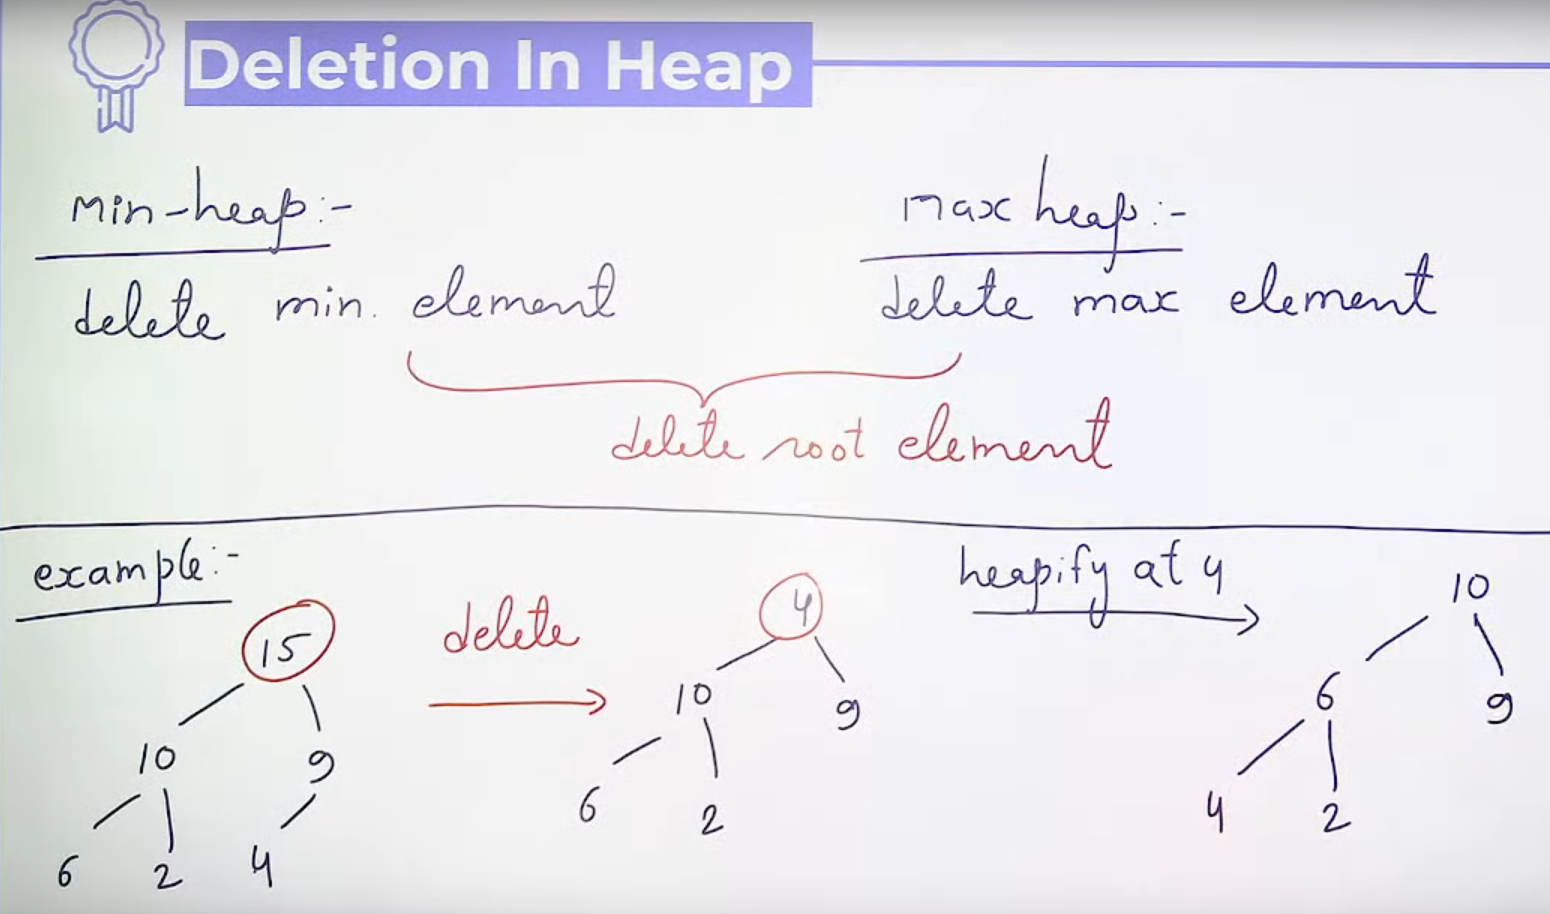 Deletion In Heap
Min-heap:-
delete min. element
Max heap:-
delete max element
delete root element
example:-
15
10 9
6 2 4
delete
4
10 9
6 2
heapify at 4
10
6 9
4 2